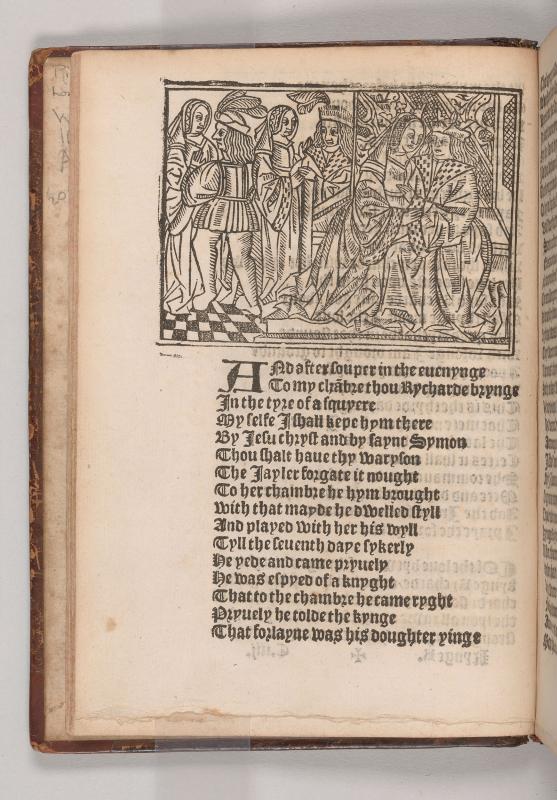 ANd after souper in the euenynge
To my chābre thou Rycharde brynge
In the tyre of a squyere
My selfe I shall kepe hym there
By Jesu chryst and by saynt Symon
Thou shalt haue thy waryson
The Jayler forgate it nought
To her chambre he hym brought
with that mayde he dwelled styll
And played with her his wyll
Tyll the seuenth daye sykerly
He yede and came pryuely
He was espyed of a knyght
That to the chambre he came ryght
Pryuely he tolde the kynge
That forlayne was his doughter yinge